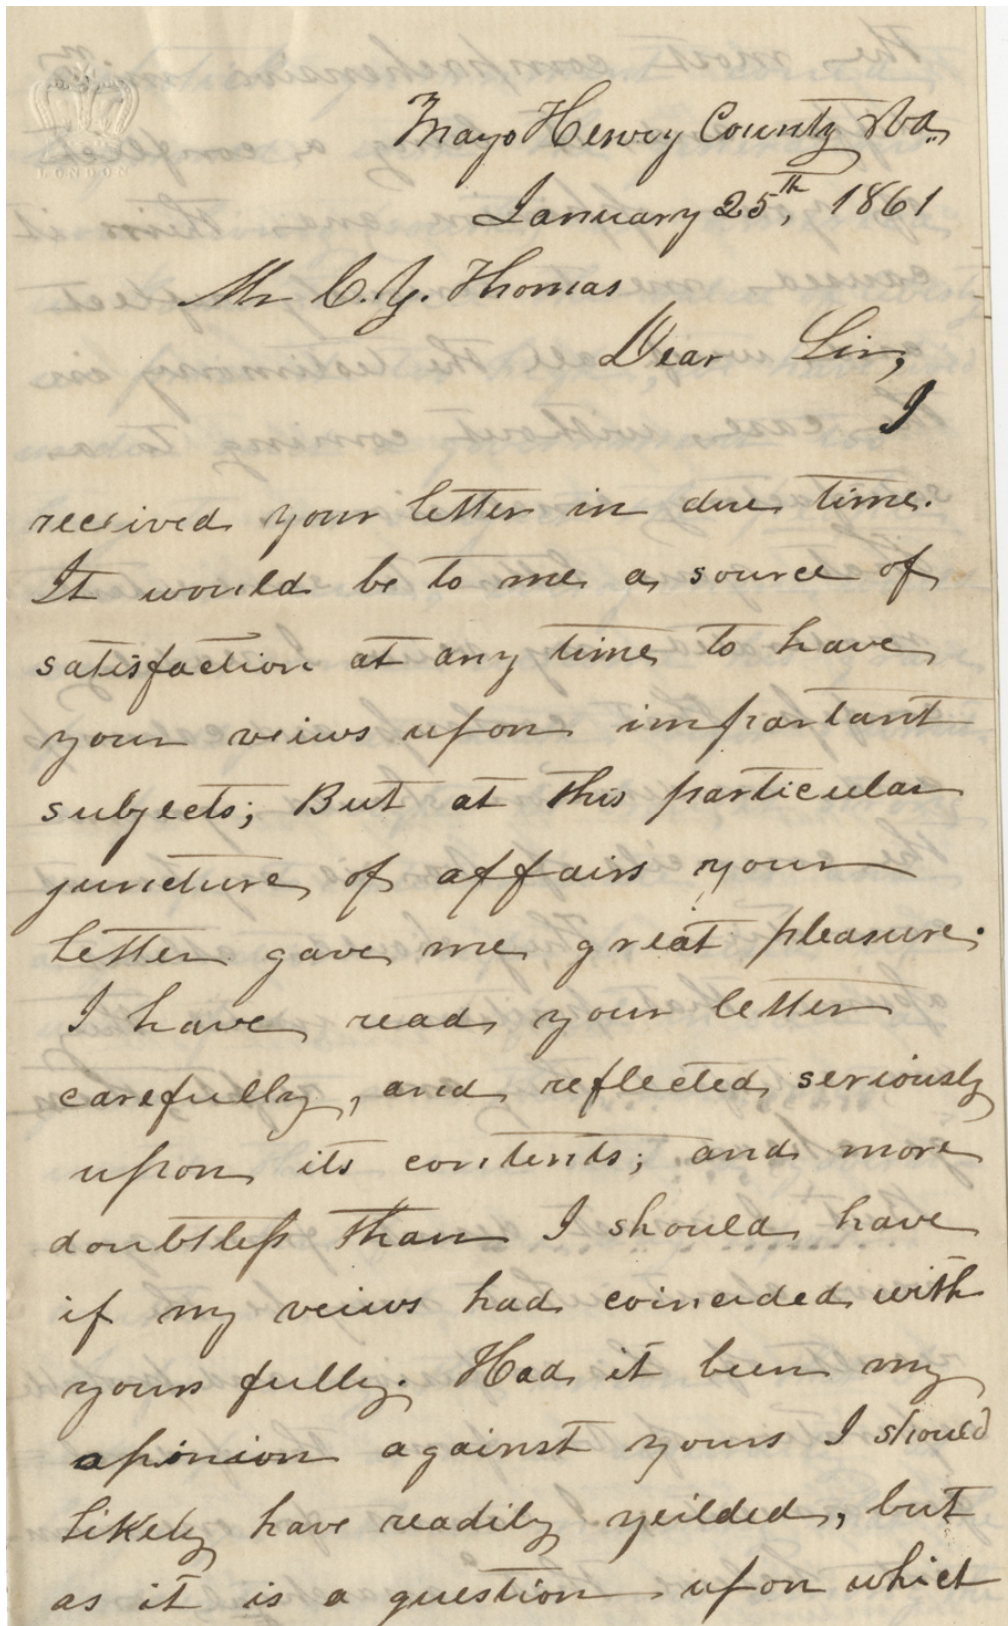 LONDON
Mayo Henry County Va,
January 25th, 1861
Mr C. Y. Thomas
Dear Sir,
I
received your letter in due time.
It would be to me a source of
satisfaction at any time to have
your veiws upon important
subjects; But at this particular
juncture of affairs your
letter gave me great pleasure.
I have read your letter
carefully, and reflected seriously
upon its contents; and more
doubtless than I should have
if my veiws had coincided with
yours fully. Had it been my
opinion against yours I should
likely have readily yeilded, but
as it is a question upon which